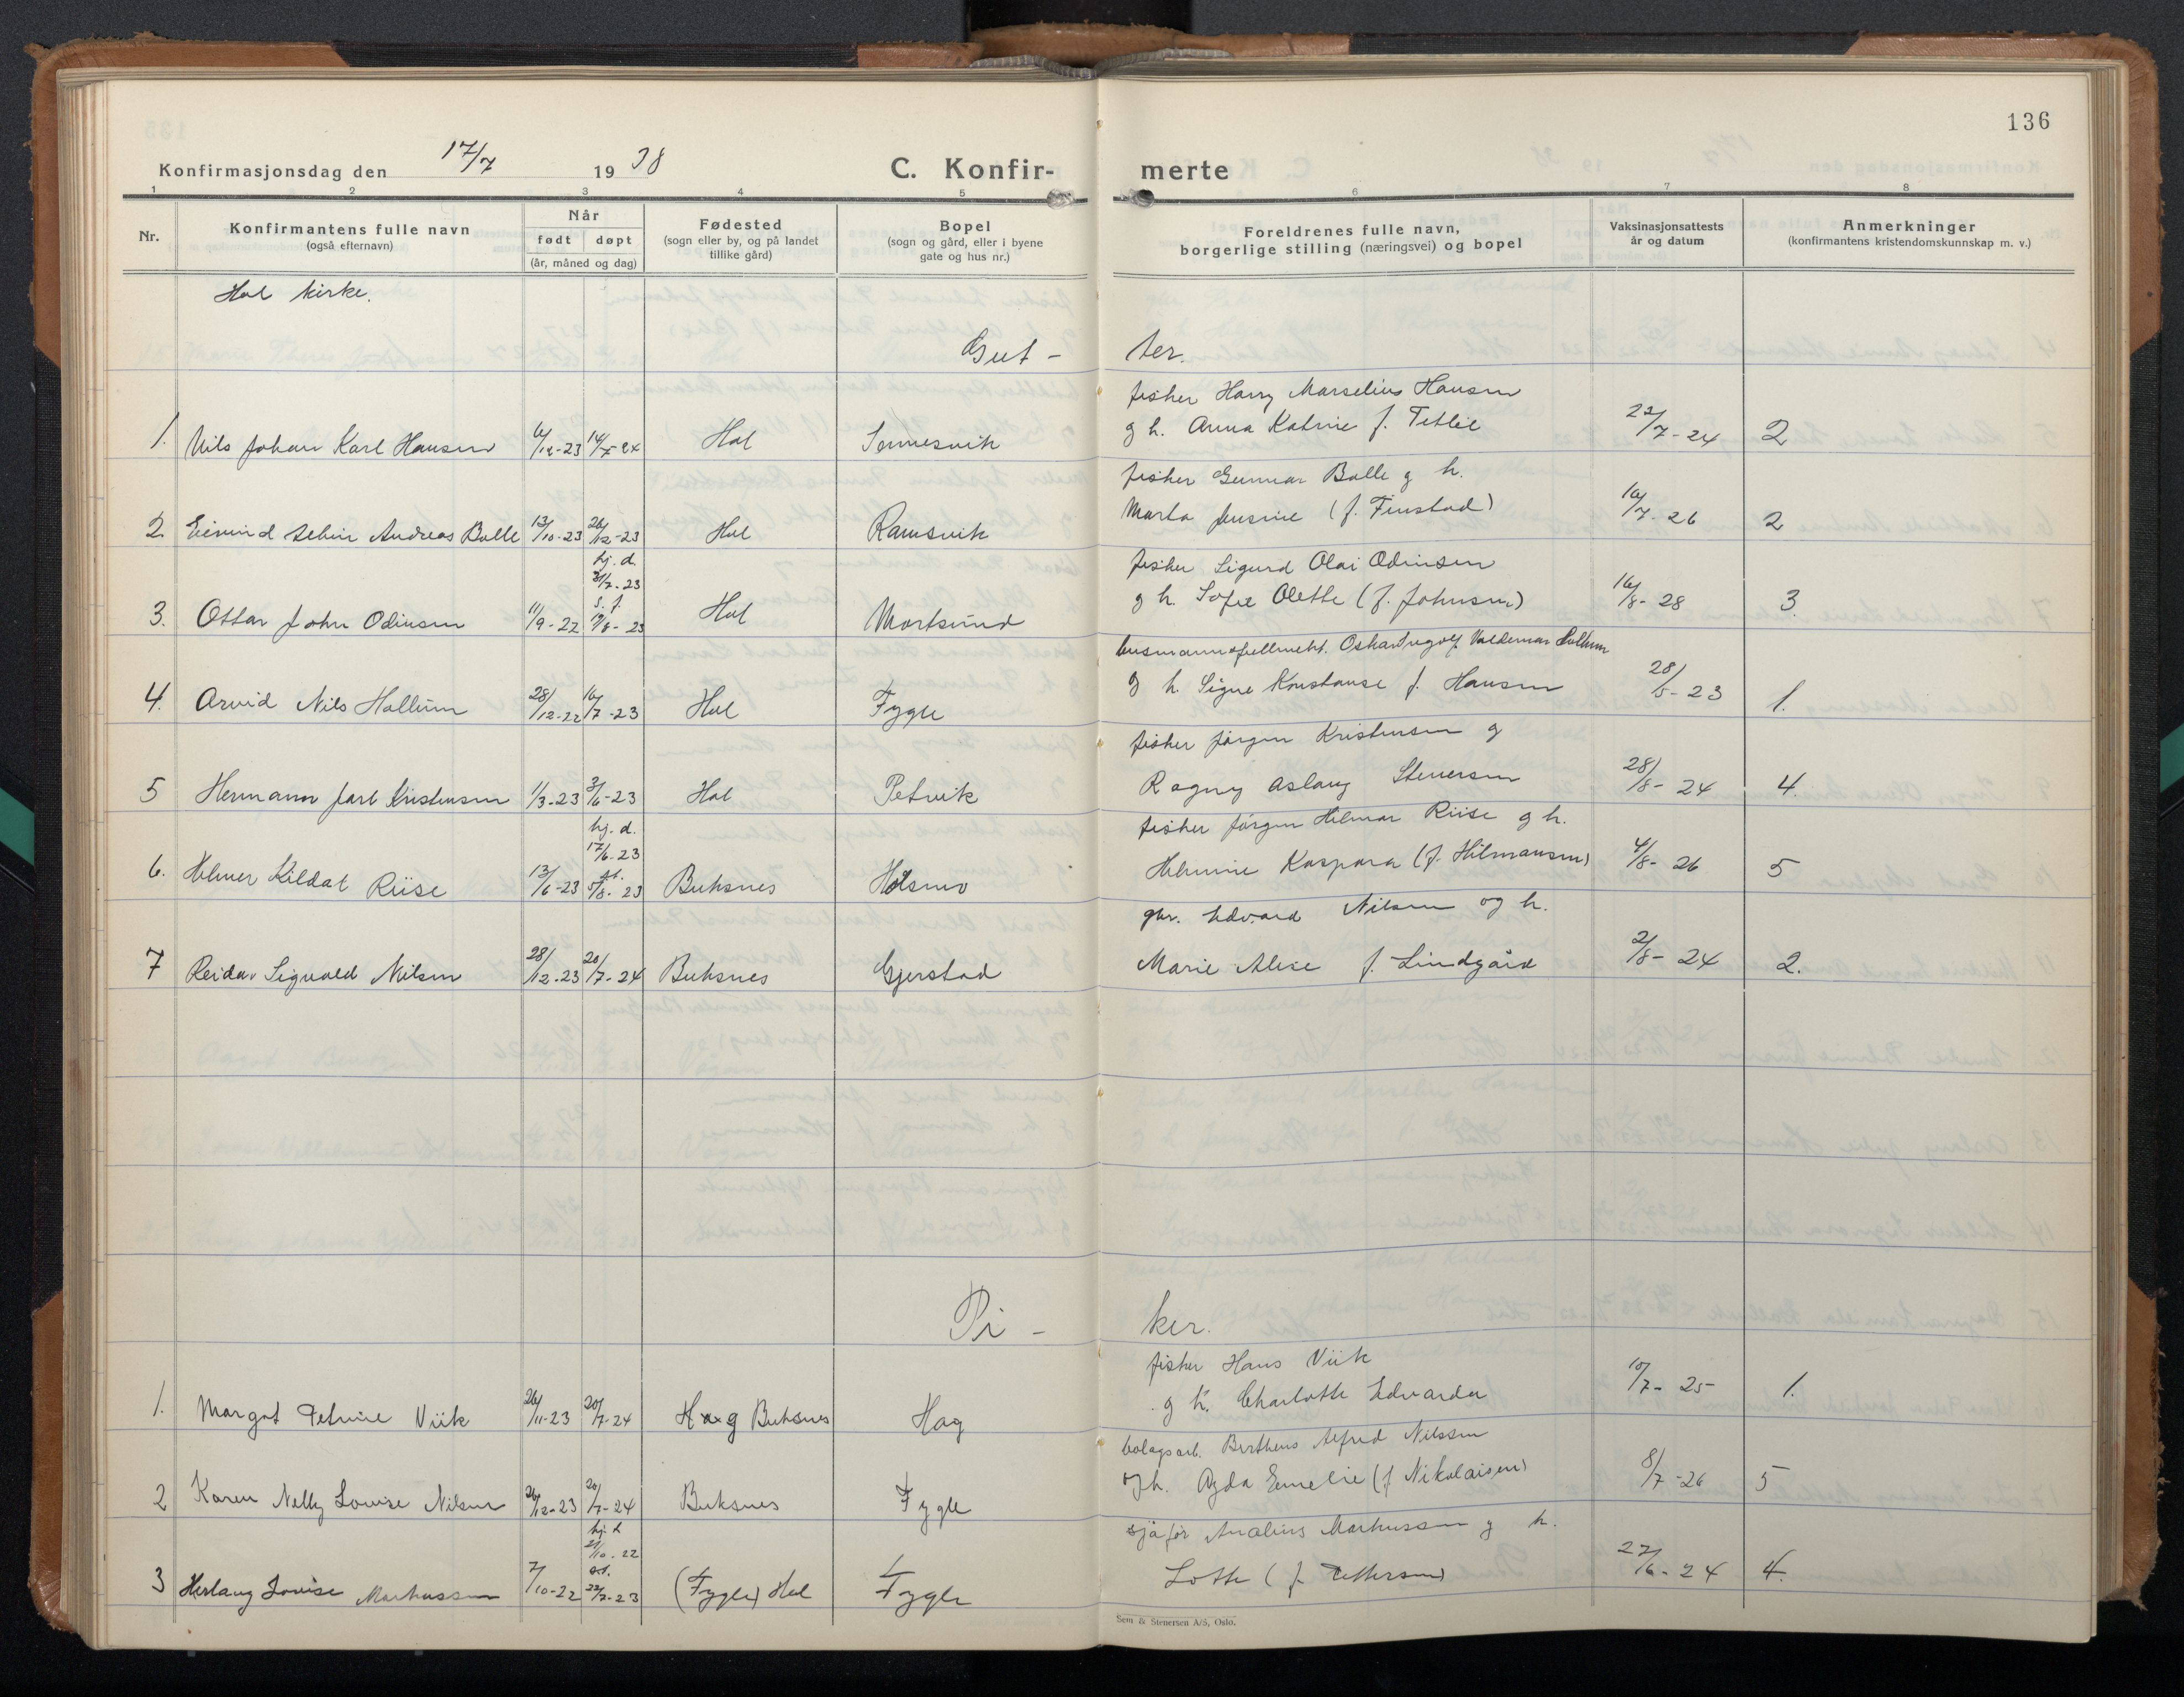 136
Konfirmasjonsdag den 17/7 1938
C. Konfir-
merte
1 2 3 4 5 6 7 8
Nr.
Konfirmantens fulle navn
(også efternavn)
Når
født døpt
(år, måned og dag)
Fødested
(sogn eller by, og på landet
tillike gård)
Bopel
(sogn og gård, eller i byene
gate og hus nr.)
Foreldrenes fulle navn,
borgerlige stilling (næringsvei) og bopel
Vaksinasjonsattests
år og datum
Anmerkninger
(konfirmantens kristendomskunnskap m. v.)
Hol kirke.
Gut-
ter.
fisker Harry Marselius Hansen
1. Nils Johan Karl Hansen 6/12-23 14/5-24 Hol Sennesvik g h. Anna Katrine f. Tetlie 22/7-24 2
fisker Gunnar Balle g h.
2. Eivind Andreas Balle 13/10-23 26/12-23 Hol Ramsvik Marta Jensine (f. Finstad) 16/7-26 2
hj. d.
21/7-23
fisker Sigurd Olai Odinsen
s. f.
3. Ottar John Odinsen 11/9-22 19/8-23 Hol Mortsund g h. Sofie Olette (f. Johnsen) 16/8-28 3.
Oskar Ingolf Valdemar Hallum
4. Arvid Nils Hallum 28/12-22 16/7-23 Hol Fygle g h. Signe Konstanse f. Hansen 28/5-23 1.
fisker Jørgen Kristensen g
5 Hermann Jarl Kristensen 1/3-23 3/6-23 Hol Petvik Ragny Aslaug Stenersen 28/8-24 4.
hj. d.
17/6-23
fisker Jörgen Hilmar Riise g h.
st.
6. Helmer Kildal Riise 13/6-23 5/8-23 Buksnes Holsmo Helmine Kaspara (f. Hilmansen) 4/8-26 5
gbr. Edvard Nilsen og h.
7 Reidar Sigvald Nilsen 28/12-23 20/7-24 Buksnes Gjerstad Marie Alise f. Lindgård 2/8-24 2.
Pi-
ker.
fisker Hans Viik
1. Margot Petrine Viik 26/11-23 20/7-24 Hag Buksnes Hag g h. Charlotte Edvarda 10/7-25 1.
bolagsarb. Bertheus Alfred Nilssen
2 Karen Nelly Lovise Nilsen 26/12-23 20/7-24 Buksnes Fygle og h. Agda Emelie (f Nikolaisen) 8/7-26 5
hj. d
21/10-22
sjåfør Analius Markussen g h.
st.
3 Herlaug Lovise Markussen 7/10-22 22/7-23 (Fygle) Hol Fygle Lotte (f. Pettersen) 27/6-24 4.
Sem & Stenersen A/S, Oslo.